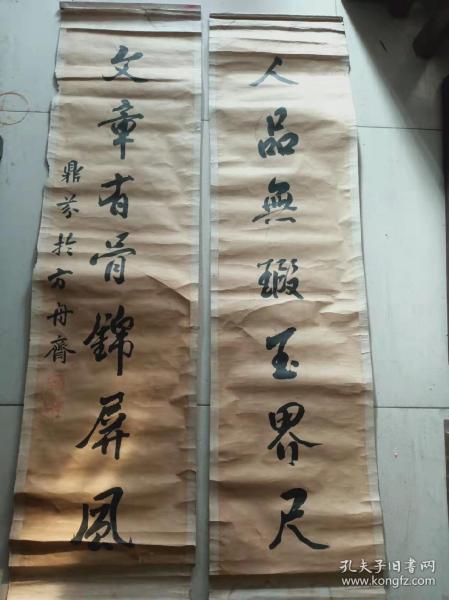 人品無瑕玉界尺
文章有骨錦屏風
鼎芬於方舟齋
孔夫子旧书网
www.kongfz.com